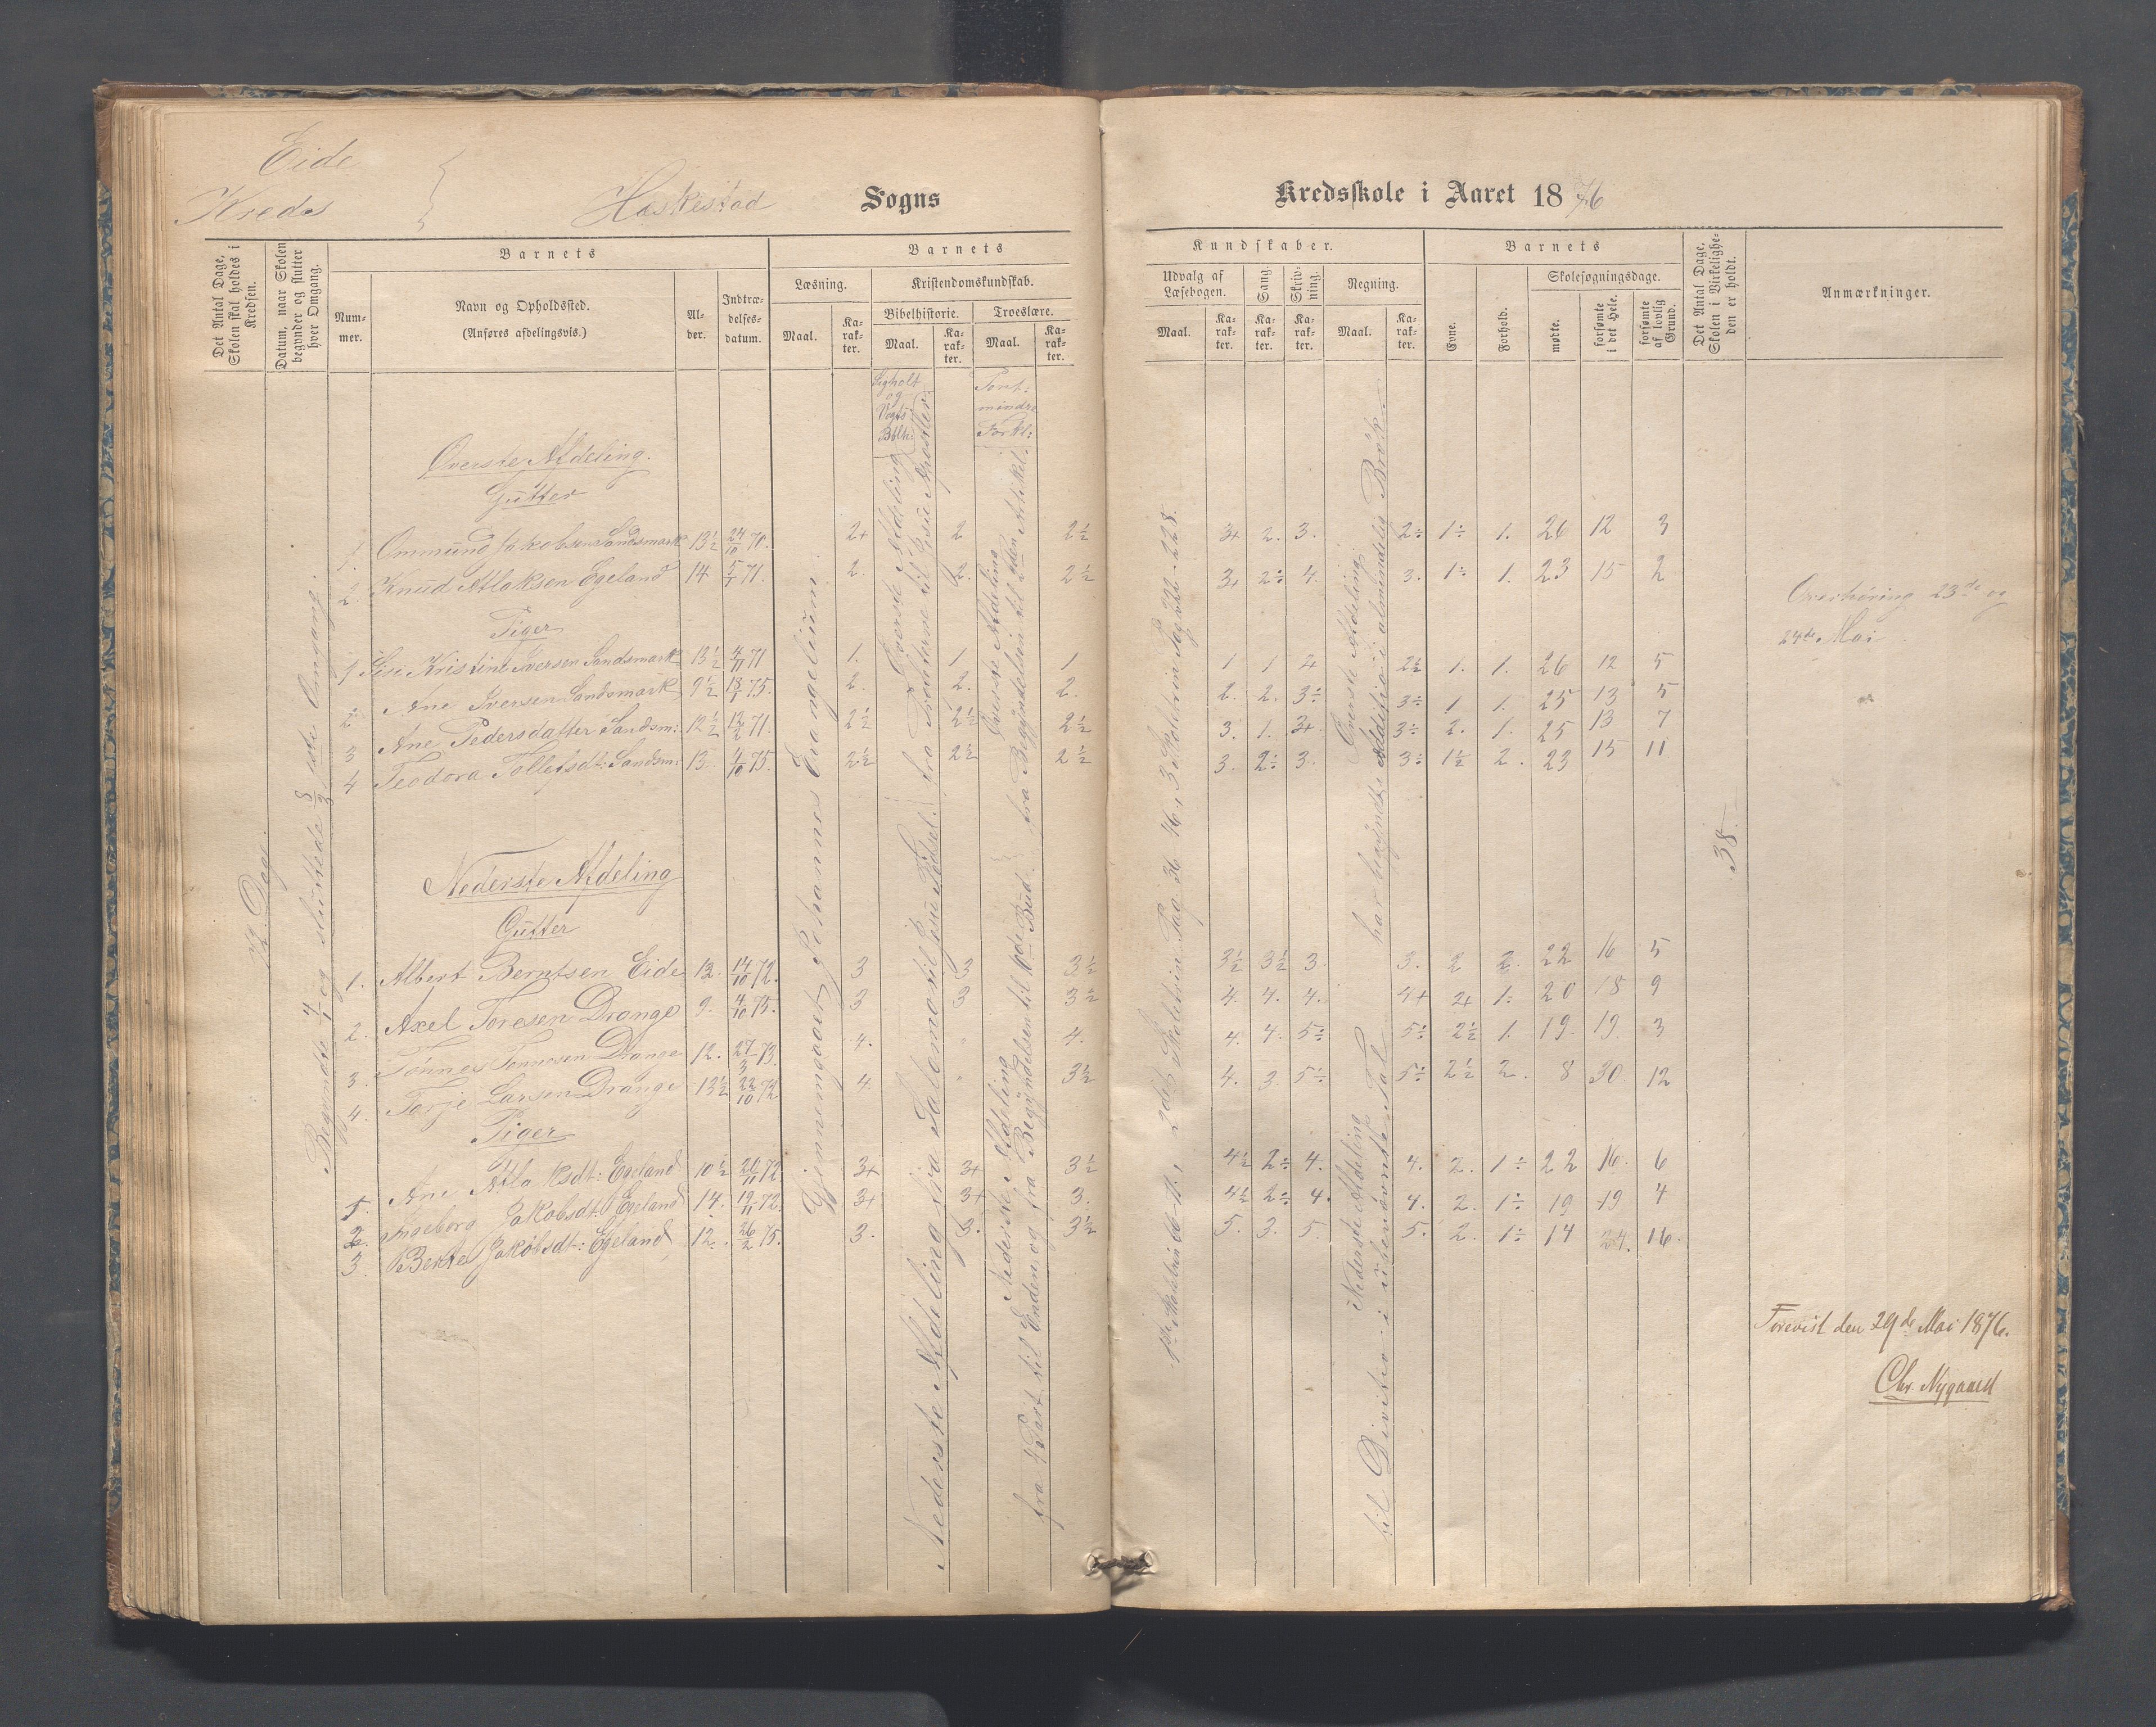 Eide
Kreds
Heskestad Sogns Kredsskole i Aaret 1876
Det Antal Dage, Skolen skal holdes i Kredsen.
Datum, naar Skolen begynder og slutter hver Omgang.
Barnets
Nummer.
Navn og Opholdssted.
(Anføres afdelingsvis.)
Alder.
Indtrædelsesdatum.
Barnets
Læsning.
Maal.
Karakter.
Kristendomskundskab.
Bibelhistorie.
Maal.
Karakter.
Troeslære.
Maal.
Karakter.
Kundskaber.
Udvalg af Læsebogen.
Maal.
Karakter.
Sang.
Karakter.
Skrivning.
Karakter.
Regning.
Maal.
Karakter.
Barnets
Evne.
Forhold.
Skolesøgningsdage.
mødte.
forsømte i det Hele.
forsømte af lovlig Grund.
Det Antal Dage, Skolen i Virkeligheden er holdt.
Anmærkninger.
og
Vogts
Bblh:
Pont:
mindre
Forkl:
Øverste Afdeling.
Gutter
1. Ommund Jakobsen Sandsmark 13½ 24/10 70. 2+ 2 2½ 3+ 2. 3. 2÷ 1÷ 1. 26 12 3
2. Knud Atlaksen Egeland 14 5/1 71. 2. 2½ 3+ 2÷ 4. 3. 1÷ 1. 23 15 2
Piger
1 Sisi Kristine Iversen Sandsmark 13½ 4/11 71 1. 1 1 1 1 2 2½ 1. 1. 26 12 5
2 Ane Iversen Sandsmark 9½ 18/1 75. 2. 2. 2. 2. 2. 3÷ 3÷ 1 1. 25 13 5
3 Ane Pedersdatter Sandsm: 12½ 12/2 71. 2½ 2½ 2½ 3. 1. 3+ 3÷ 2. 1. 25 13 7
4 Teodora Tollefsdt: Sandsm: 13 4/10 75. 2½ 2½ 2½ 3. 2÷ 3. 3÷ 1½ 2. 23 15 11
Nederste Afdeling
Gutter
1. Albert Berntsen Eide 12. 14/10 72. 3 3 3½ 3½ 3½ 3. 3. 2 2. 22 16 5
2. Axel Toresen Drange 9. 4/10 75. 3 3 3½ 4. 4. 4. 4+ 2+ 1÷ 20 18 9
3. Tönnes Tönnesen Drange 12. 27/3 73. 4. 4. 4. 4. 5÷ 5÷ 2½ 1. 19. 19. 3
4. Tarje Larsen Drange 13½ 22/10 72 4. 3½ 4. 3. 5÷ 5÷ 2½ 2. 8 30. 12
Piger
1. Ane Atlaksdt: Egeland 10½ 20/11 72 3+ 3+ 3½ 4½ 2÷ 4. 4. 2. 1÷ 22 16. 6
2. Ingeborg Jakobsdt Egeland 14. 19/11 72. 3+ 3+ 3. 4½ 2÷ 4. 4. 2. 1÷ 19 19 4
3. Berte Jakobsdt: Egeland 12. 26/2 75. 3. 3. 3½ 5. 3. 5. 5. 2. 1÷ 14 24. 16.
Dage.
Begyndte 4/1 og sluttede 8/3 1ste Omgang.
Gjennemgaaet Johannes Evangelium
Nederste Afdeling fra Salomo til Jesu Födsel.
Øverste Afdeling fra Profeterne til Jesu Apostler
Nederste Afdeling
fra 4 Part til Enden, og fra Begyndelsen til 10de Bud.
Øverste Afdeling
fra Begyndelsen til 2den Artikel.
Nederste Afdeling
til Division i ubenævnte Tal
Øverste Afdeling
har begyndt i Addition i almindelig Brök.
38.
Overhøring 23de og
24de Mai
Forevist den 29de Mai 1876.
Chr. Nygaard